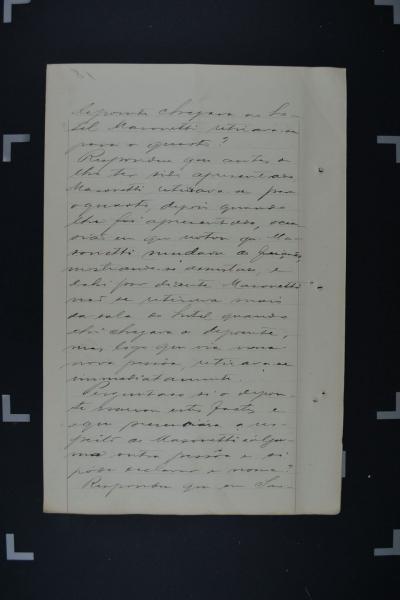 depoente chegava ao Ho-
tel Masonetti retirava-se
para o quarto?
Respondeu que antes de
lhe ter sido apresentado
Masonetti retirava-se para
o quarto, depois quando
lhe foi apresentado, occa-
sião em que notou que Ma-
sonetti mudava de
mostrando-se e
dahi por diante Masonetti
não se retirava mais
da sala do hotel quando
ahi chegava o depoente,
mas logo que via uma
nova pessôa, retirava-se
immediatamente.
Perguntado si o depoen-
te estes factos e
o que a res-
peito de Masonetti a algu-
ma outra pessôa e si
póde declarar o nome?
Respondeu que em